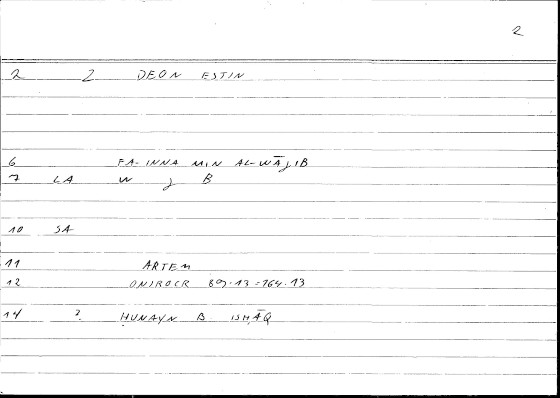 2
2 2 DEON ESTIN
6 FA-INNA MIN AL-WĀJIB
7 LA W J B
10 SA
11 ARTEM
12 ONIROCR 89.13 = 164.13
14 ? ḤUNAYN B. ISḤĀQ